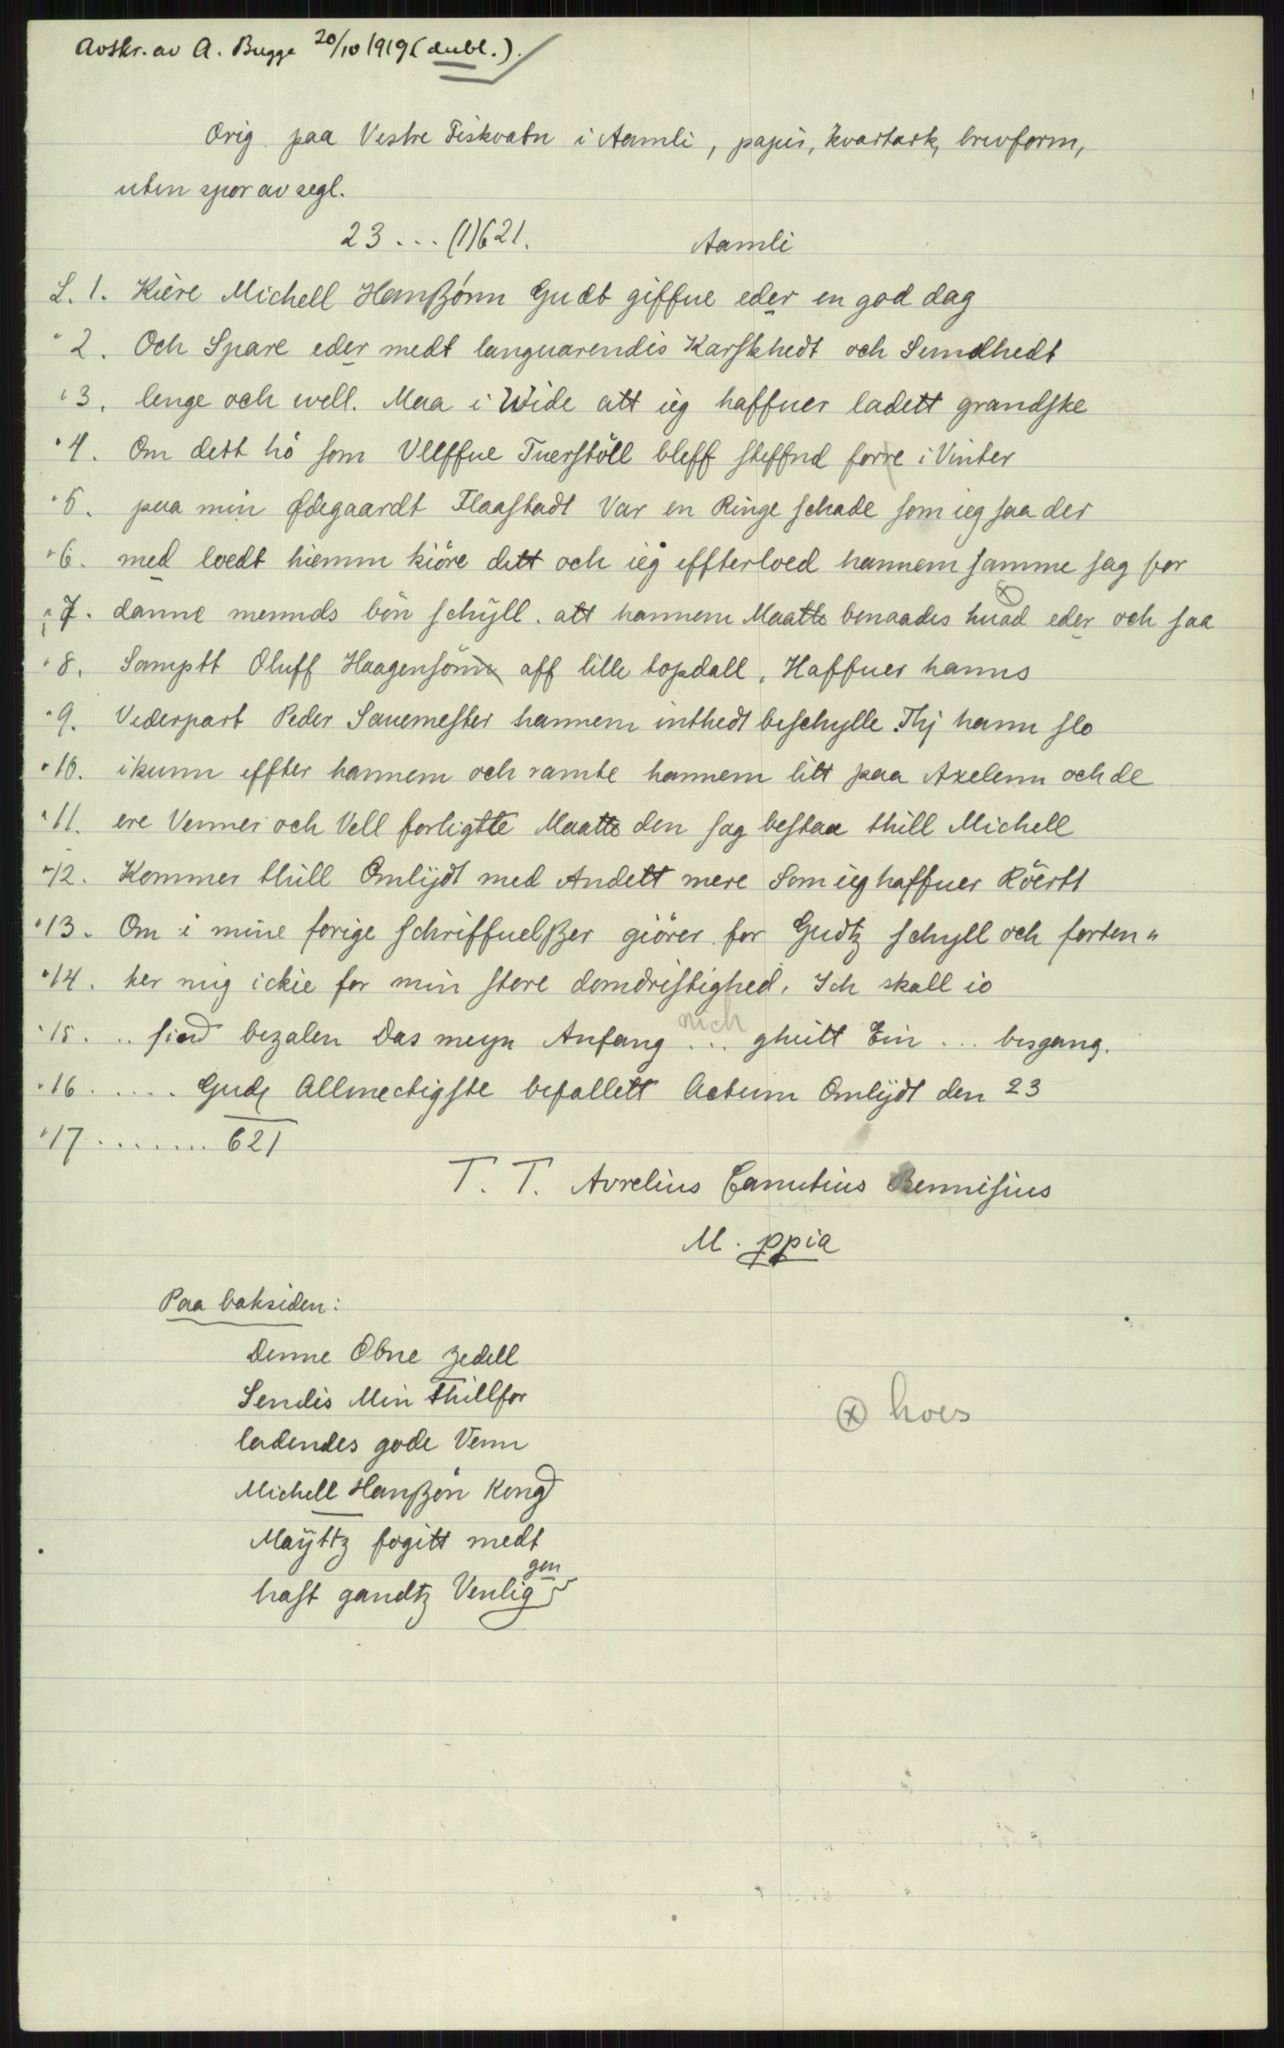 Avskr. av A. Bugge 20/10 1919 (dubl.).
Orig. paa Vestre Fiskvatn i Aamli, papir, kvartark, brevform,
uten spor av segl.
23 ... (1)621. Aamli
L. 1. Kière Michell Hanßönn Gudt giffue eder en god dag
" 2. Och Spare eder medt languarendis Karskhedt och Sundhedt
" 3. lenge och well. Maa i Wide att ieg haffuer ladett grandske
" 4. Om dett hö som Vllffue Tuerstöll bleff steffnd forre i Vinter
" 5. paa min Ødegaardt Flaastadt Var en Ringe schade som ieg saa der
" 6. med loedt hiemm kiöre dett och ieg effterloed hannem samme sag for
" 7. danne mennds bön schÿll. att hannem Maatte benaades huad ⊗ eder och saa
" 8. Samptt Oluff Haagensönn aff lille topdall. Haffuer hanns
" 9. Vederpart Peder Sauemester hannem inthedt beschylle. Thj hann slo
" 10. ikunn effter hannem och ramte hannem litt paa Axelenn och de
" 11. ere Venner och Vell forligtte Maatte den sag bestaa thill Michell
" 12. Kommer thill Omlÿdt med Andett mere Som ieg haffuer Röertt
" 13. Om i mine forige schriffuelßer giörer for Gudtz schyll och forten"
" 14. ker mig ickie for min store domdristighed. Ich skall io
" 15. .. bezalen Das meyn Anfang ... nich ghutt Ein ... besgang.
" 16 ..... Gudz Allmectigste befallett Actum Omlÿdt den 23
" 17 ........ 621
T. T. Avrelius Canutius Bennisius
M. ppia
Paa baksiden:
Denne Obne zedell
Sendis Min thillfor
ladendes gode Venn
Michell Hanßön Kong
Maÿttz fogitt medt
hast gandtz Venliggen
⊗ hoes